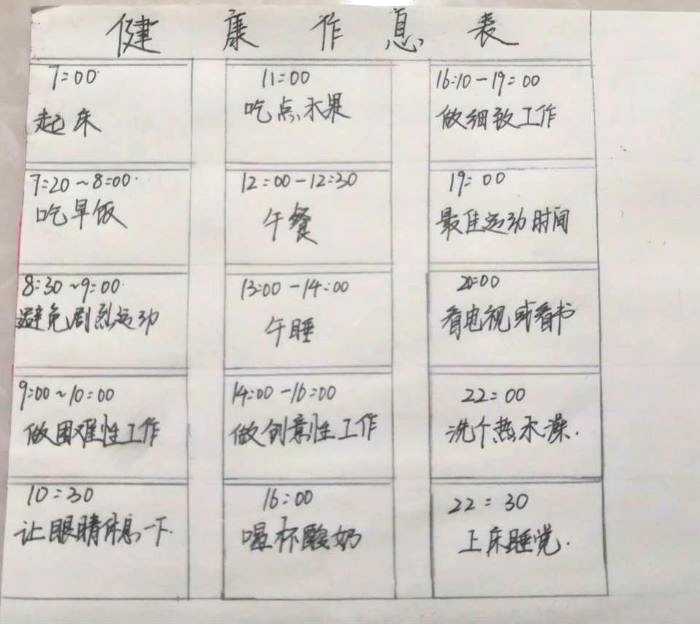 健康作息表
7:00
起床
7:20~8:00
吃早饭
8:30~9:00
避免剧烈运动
9:00~10:00
做困难性工作
10:30
让眼睛休息一下
11:00
吃点水果
12:00-12:30
午餐
13:00-14:00
午睡
14:00-16:00
做创意性工作
16:00
喝杯酸奶
16:10-19:00
做细致工作
19:00
最佳运动时间
20:00
看电视或看书
22:00
洗个热水澡.
22:30
上床睡觉.